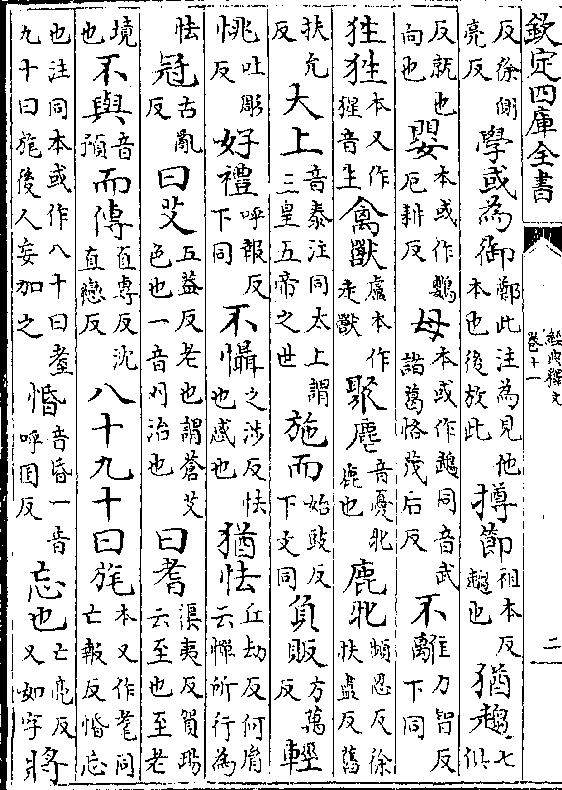 欽定四庫全書
經典釋文
卷十一
二
反徐側亮反學或為御鄭此注為見他本也後放此撙節祖本反趨也猶趨七俱
反就也向也嬰本或作鸚厄耕反母本或作䳇同音武諸葛恪茂后反不離力智反下同
狌狌本又作猩音生禽獸盧本作走獸聚麀音憂牝鹿也鹿牝頻忍反徐扶盡反舊
扶允反大上音泰注同太上謂三皇五帝之世施而始豉反下文同負販方萬反輕
佻吐彫反好禮呼報反下同不懾之涉反怯也惑也猶怯丘劫反何胤云憚所行為
怯冠古亂反曰艾五蓋反老也謂蒼艾色也一音刈治也曰耆渠夷反賀瑒云至也至老
境也不與音預而傳直專反沈直戀反八十九十曰旄本又作耄同亡報反惛忘
也注同本或作八十曰耋九十曰旄後人妄加之惛音昏一音呼困反忘也亡亮反又如字將